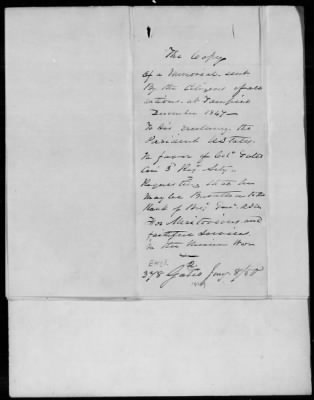 The Copy
of a Memorial sent
By the Citizens of all
nations at Tampico
December 1847
To His Excellency the
President U States
In favor of Col Gates
Com 3d Regt Arty
Requesting that he
may be Brevetted to the
Rank of Brig Genl USA
For Meritorious and
faithful Services
in the Mexican War
378 Gates Jany 8/50